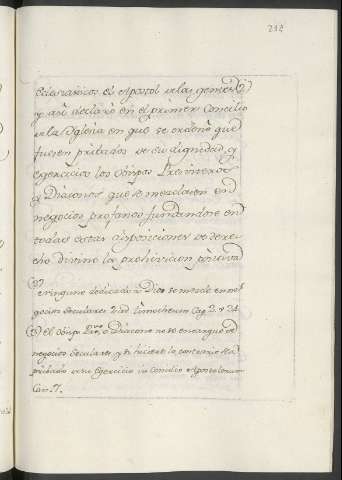 212
eclesiasticos el Apostol a las gentes
y asi declaró en el primer Concilio
de la Iglesia en que se ordenó que
fuesen pribados de su dignidad, y
egercicios los Obispos Presviteros
y Diaconos que se mezclasen en
negocios profanos fundandose en
todas estas disposiciones de dere-
cho divino la prohivicion positiva
ninguno dedicado a Dios se mezcle en ne-
gocios seculares 2 ad Timotheum Cap. 2. v 24.
El Obispo Pro. o Diacono no se encargue de
negocios seculares, y si hiciere lo contrario sea
pribado de su Egercicio in Concilio Apostolorum
Can. 7.